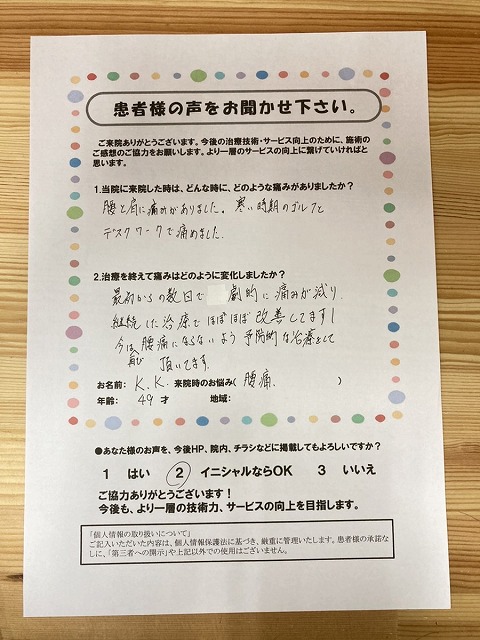 患者様の声をお聞かせ下さい。
ご来院ありがとうございます。今後の治療技術・サービス向上のために、施術の
ご感想のご協力をお願いします。より一層のサービスの向上に繋げていければと
思います。
1.当院に来院した時は、どんな時に、どのような痛みがありましたか？
腰と肩に痛みがありました。寒い時期のゴルフと
デスクワークで痛めました。
2.治療を終えて痛みはどのように変化しましたか？
最初からの数日で 劇的に痛みが減り、
継続した治療でほぼほぼ改善してます!
今は腰痛にならないよう予防的な治療をして
再び
頂いてます。
お名前： K.K. 来院時のお悩み( 腰痛. )
年齢： 49 才 地域：
●あなた様のお声を、今後HP、院内、チラシなどに掲載してもよろしいですか？
1 はい 2 イニシャルならOK 3 いいえ
ご協力ありがとうございます！
今後も、より一層の技術力、サービスの向上を目指します。
「個人情報の取り扱いについて」
ご記入いただいた内容は、個人情報保護法に基づき、厳重に管理いたします。患者様の承諾な
しに、「第三者への開示」や上記以外での使用はございません。